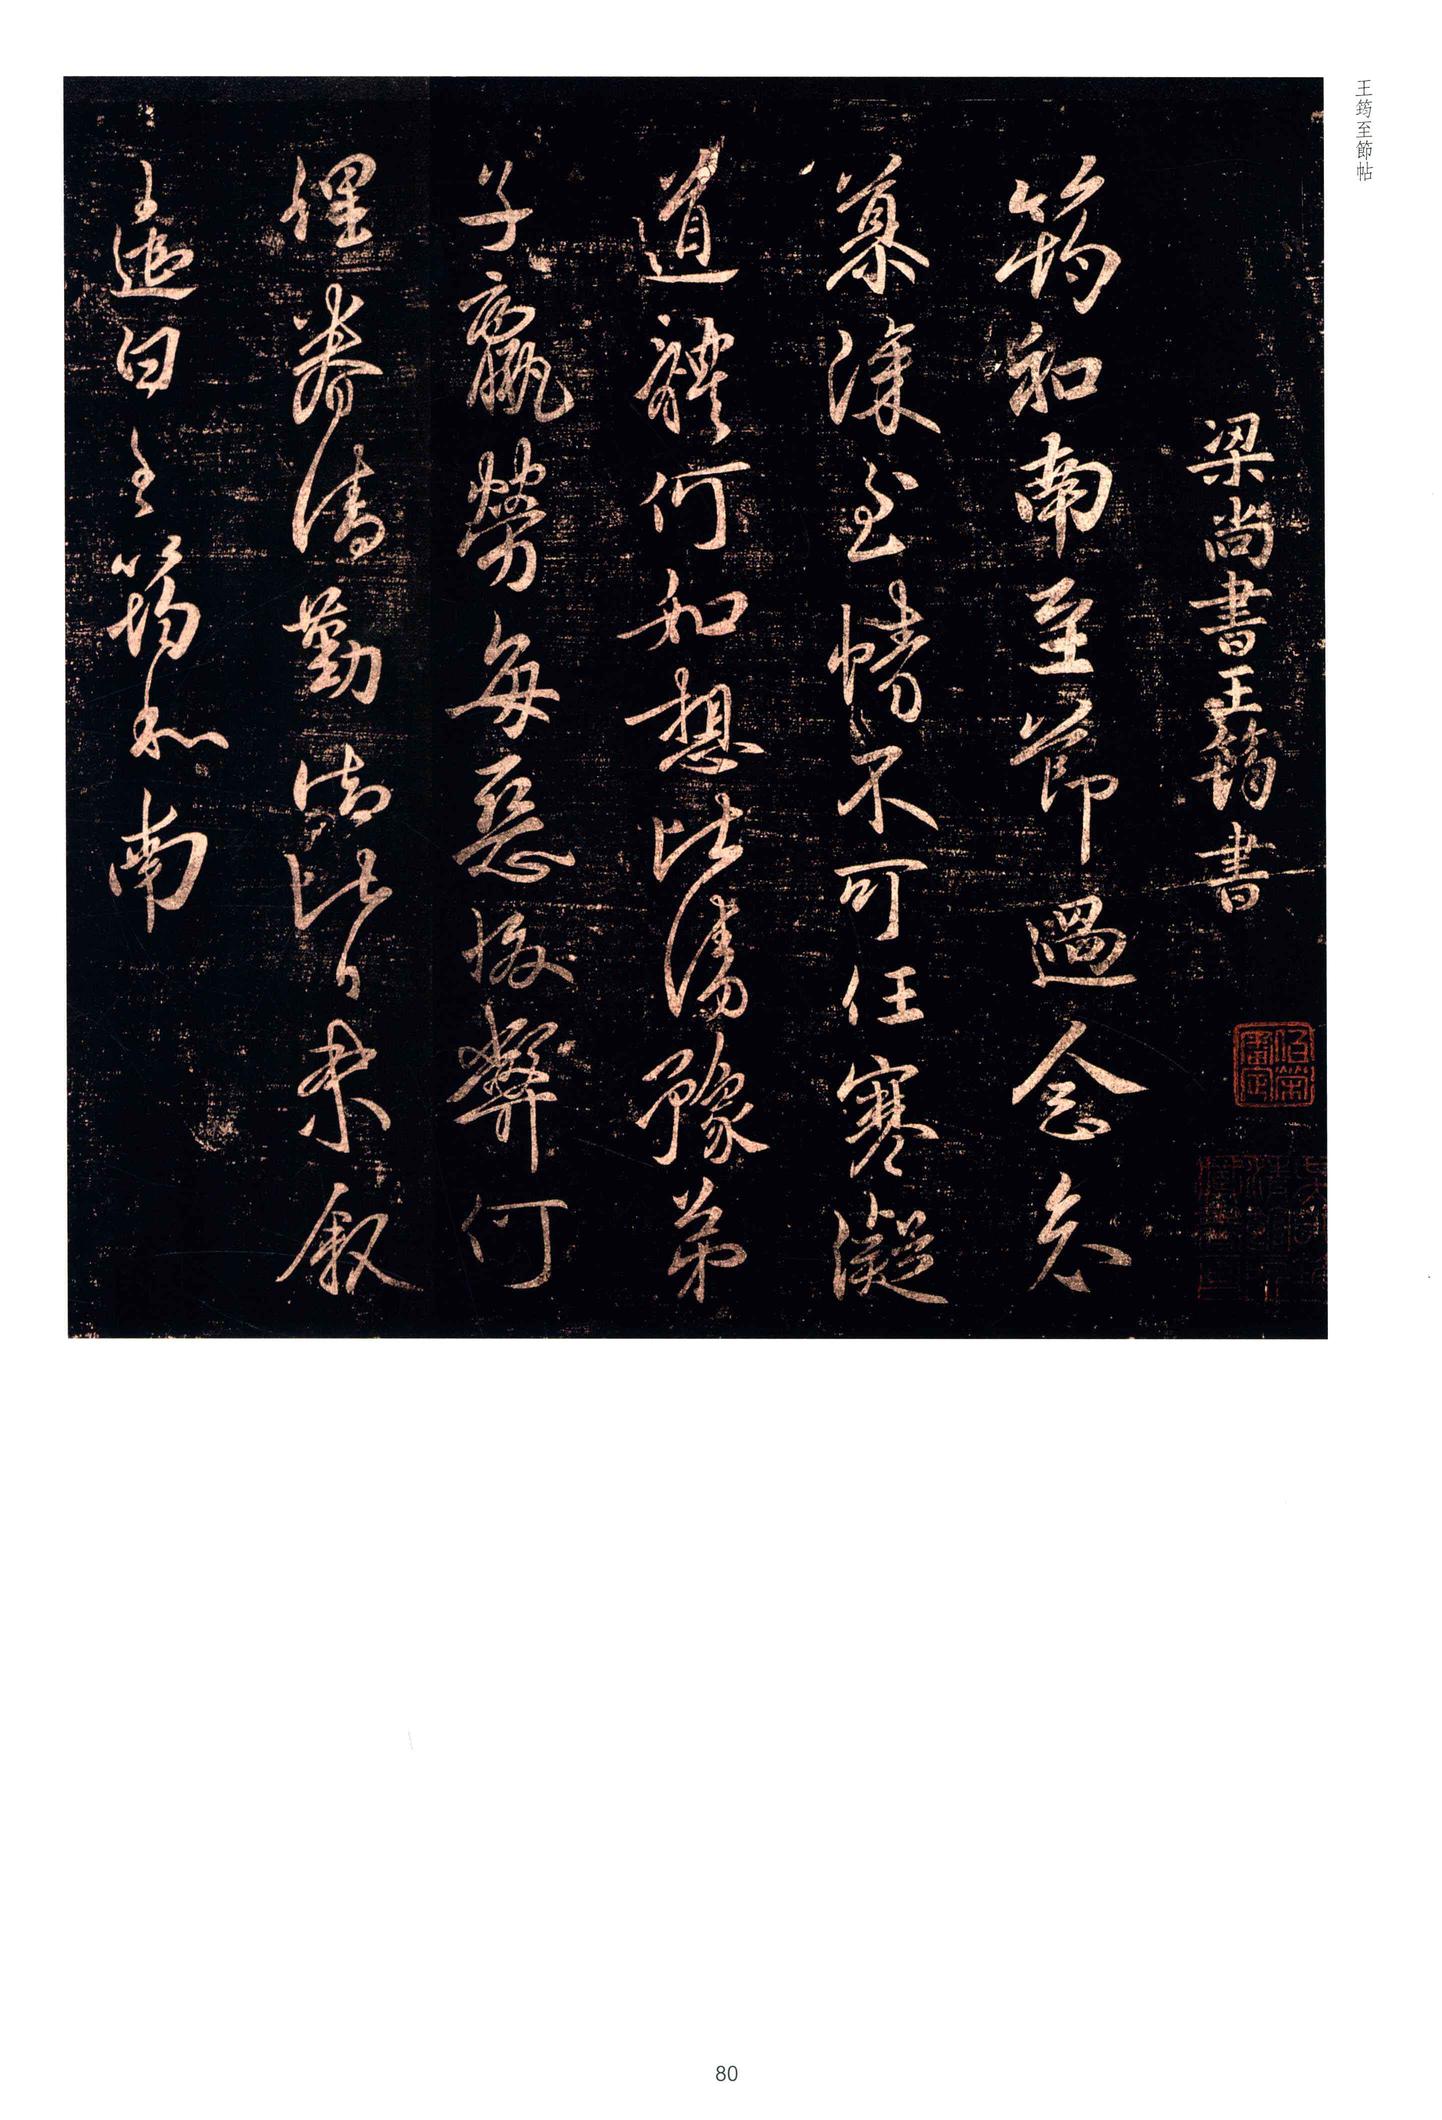 王筠至節帖
梁尚書王筠書
筠和南至節過念念
慕深至情不可任寒凝
道體何如想比清豫弟
子羸勞每惡惙弊何
理眷清勤
比日未敘
遣白
筠和南
80